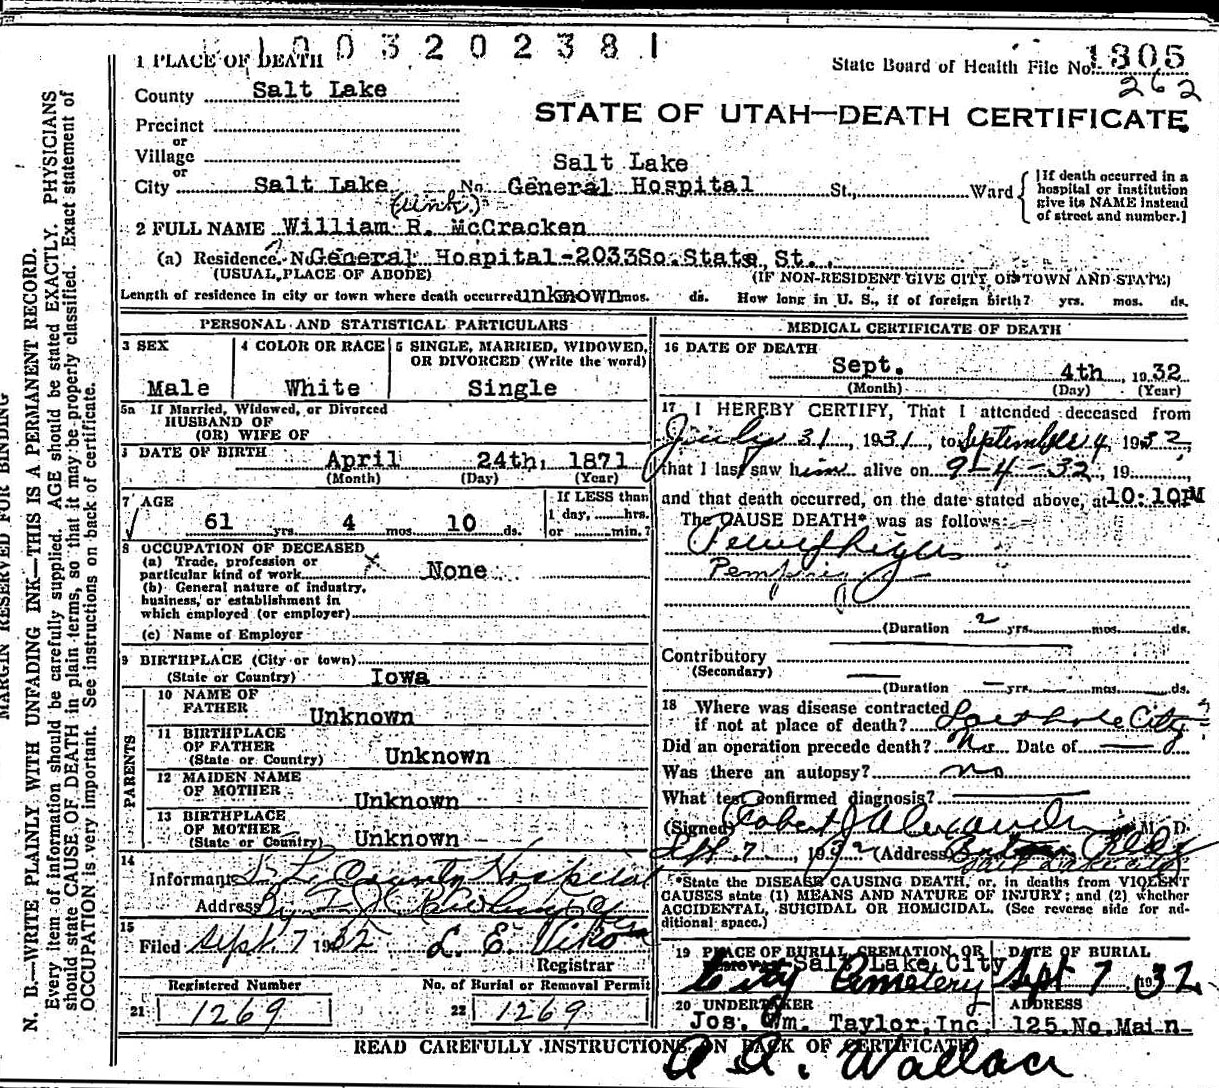 1003202381
1 PLACE OF DEATH
State Board of Health File No. 1305
262
County Salt Lake
STATE OF UTAH—DEATH CERTIFICATE
Precinct
or
Village
or
Salt Lake
City Salt Lake No. General Hospital St., Ward
[If death occurred in a hospital or institution give its NAME instead of street and number.]
(Unk.)
2 FULL NAME William R. McCracken
(a) Residence. No. General Hospital-2033So.State St.
(USUAL PLACE OF ABODE) (IF NON-RESIDENT GIVE CITY OR TOWN AND STATE)
Length of residence in city or town where death occurred unknown mos. ds. How long in U. S., if of foreign birth? yrs. mos. ds.
PERSONAL AND STATISTICAL PARTICULARS
3 SEX
Male
4 COLOR OR RACE
White
5 SINGLE, MARRIED, WIDOWED,
OR DIVORCED (Write the word)
Single
5a If Married, Widowed, or Divorced
HUSBAND OF
(OR) WIFE OF
DATE OF BIRTH April 24th, 1871
(Month) (Day) (Year)
7 AGE
61 yrs. 4 mos. 10 ds.
If LESS than
1 day, hrs.
or min.?
8 OCCUPATION OF DECEASED
(a) Trade, profession or
particular kind of work None
(b) General nature of industry,
business, or establishment in
which employed (or employer)
(c) Name of Employer
9 BIRTHPLACE (City or town)
(State or Country) Iowa
PARENTS
10 NAME OF
FATHER
Unknown
11 BIRTHPLACE
OF FATHER
(State or Country) Unknown
12 MAIDEN NAME
OF MOTHER
Unknown
13 BIRTHPLACE
OF MOTHER
(State or Country) Unknown
14
Informant S. L. County Hospital
Address By
15
Filed Sept 7 1932 L. E.
Registrar
Registered Number
21 1269
No. of Burial or Removal Permit
22 1269
MEDICAL CERTIFICATE OF DEATH
16 DATE OF DEATH
Sept. 4th, 1932
(Month) (Day) (Year)
17 I HEREBY CERTIFY, That I attended deceased from
July 31, 1931, to September 4, 1932,
that I last saw him alive on 9-4-32, 19
and that death occurred, on the date stated above, at 10:10PM
The CAUSE DEATH* was as follows:
Pemphigus
(Duration 2 yrs. mos. ds.
Contributory
(Secondary)
(Duration yrs. mos. ds.
18 Where was disease contracted
if not at place of death? Salt Lake City ?
Did an operation precede death? No Date of
Was there an autopsy? no
What test confirmed diagnosis?
(Signed) Robert J Alexander M. D.
Sept. 7, 1932 (Address)
*State the DISEASE CAUSING DEATH, or, in deaths from VIOLENT
CAUSES state (1) MEANS AND NATURE OF INJURY; and (2) whether
ACCIDENTAL, SUICIDAL OR HOMICIDAL. (See reverse side for ad-
ditional space.)
19 PLACE OF BURIAL, CREMATION OR
REMOVAL Salt Lake City
City Cemetery
DATE OF BURIAL
Sept 7 1932
20 UNDERTAKER
Jos. Wm. Taylor, Inc.
ADDRESS
125 No. Main
READ CAREFULLY INSTRUCTIONS ON BACK OF CERTIFICATE
A. A. Wallace
MARGIN RESERVED FOR BINDING
N. B.—WRITE PLAINLY WITH UNFADING INK—THIS IS A PERMANENT RECORD.
Every item of information should be carefully supplied. AGE should be stated EXACTLY. PHYSICIANS
should state CAUSE OF DEATH in plain terms, so that it may be properly classified. Exact statement of
OCCUPATION is very important. See instructions on back of certificate.